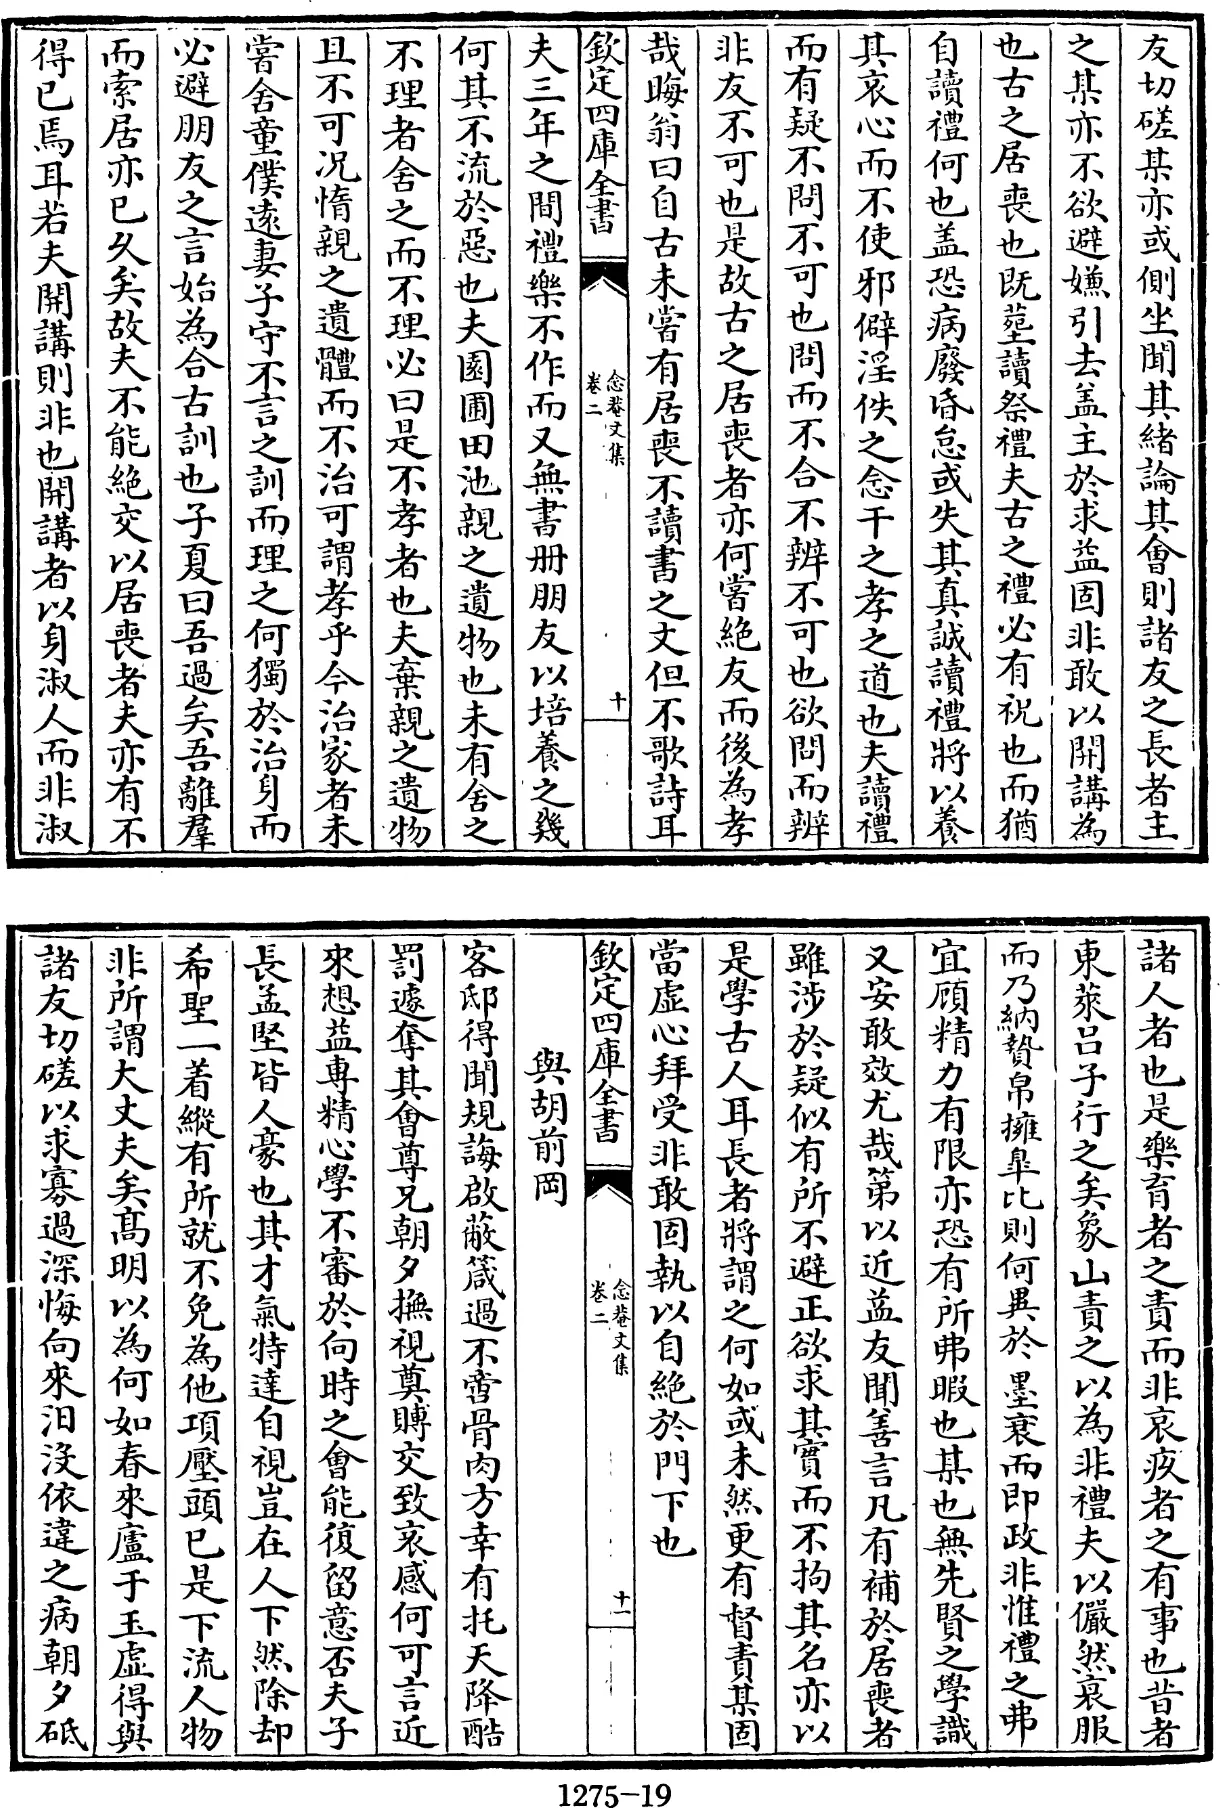 友切磋某亦或側坐聞其緒論其會則諸友之長者主
之某亦不欲避嫌引去盖主於求益固非敢以開講為
也古之居喪也既塟讀祭禮夫古之禮必有祝也而猶
自讀禮何也盖恐病廢昏怠或失其真誠讀禮將以養
其哀心而不使邪僻淫佚之念干之孝之道也夫讀禮
而有疑不問不可也問而不合不辨不可也欲問而辨
非友不可也是故古之居喪者亦何嘗絶友而後為孝
哉晦翁曰自古未嘗有居喪不讀書之文但不歌詩耳
欽定四庫全書
念菴文集
卷二
十
夫三年之間禮樂不作而又無書冊朋友以培養之幾
何其不流於惡也夫園圃田池親之遺物也未有舍之
不理者舍之而不理必曰是不孝者也夫棄親之遺物
且不可况惰親之遺體而不治可謂孝乎今治家者未
嘗舍童僕遠妻子守不言之訓而理之何獨於治身而
必避朋友之言始為合古訓也子夏曰吾過矣吾離羣
而索居亦已久矣故夫不能絶交以居喪者夫亦有不
得已焉耳若夫開講則非也開講者以身淑人而非淑
諸人者也是樂育者之責而非哀疚者之有事也昔者
東萊吕子行之矣象山責之以為非禮夫以儼然衰服
而乃納贄帛擁臯比則何異於墨衰而即政非惟禮之弗
宜顧精力有限亦恐有所弗暇也某也無先賢之學識
又安敢效尤哉第以近益友聞善言凡有補於居喪者
雖涉於疑似有所不避正欲求其實而不拘其名亦以
是學古人耳長者將謂之何如或未然更有督責某固
當虚心拜受非敢固執以自絶於門下也
欽定四庫全書
念菴文集
卷二
十一
與胡前岡
客邸得聞規誨啟蔽箴過不啻骨肉方幸有托天降酷
罰遽奪其會尊兄朝夕撫視奠賻交致哀感何可言近
來想益專精心學不審於向時之會能復留意否夫子
長孟堅皆人豪也其才氣特達自視豈在人下然除却
希聖一着縱有所就不免為他項壓頭已是下流人物
非所謂大丈夫矣高明以為何如春來廬于玉虚得與
諸友切磋以求寡過深悔向來汨没依違之病朝夕砥
1275-19